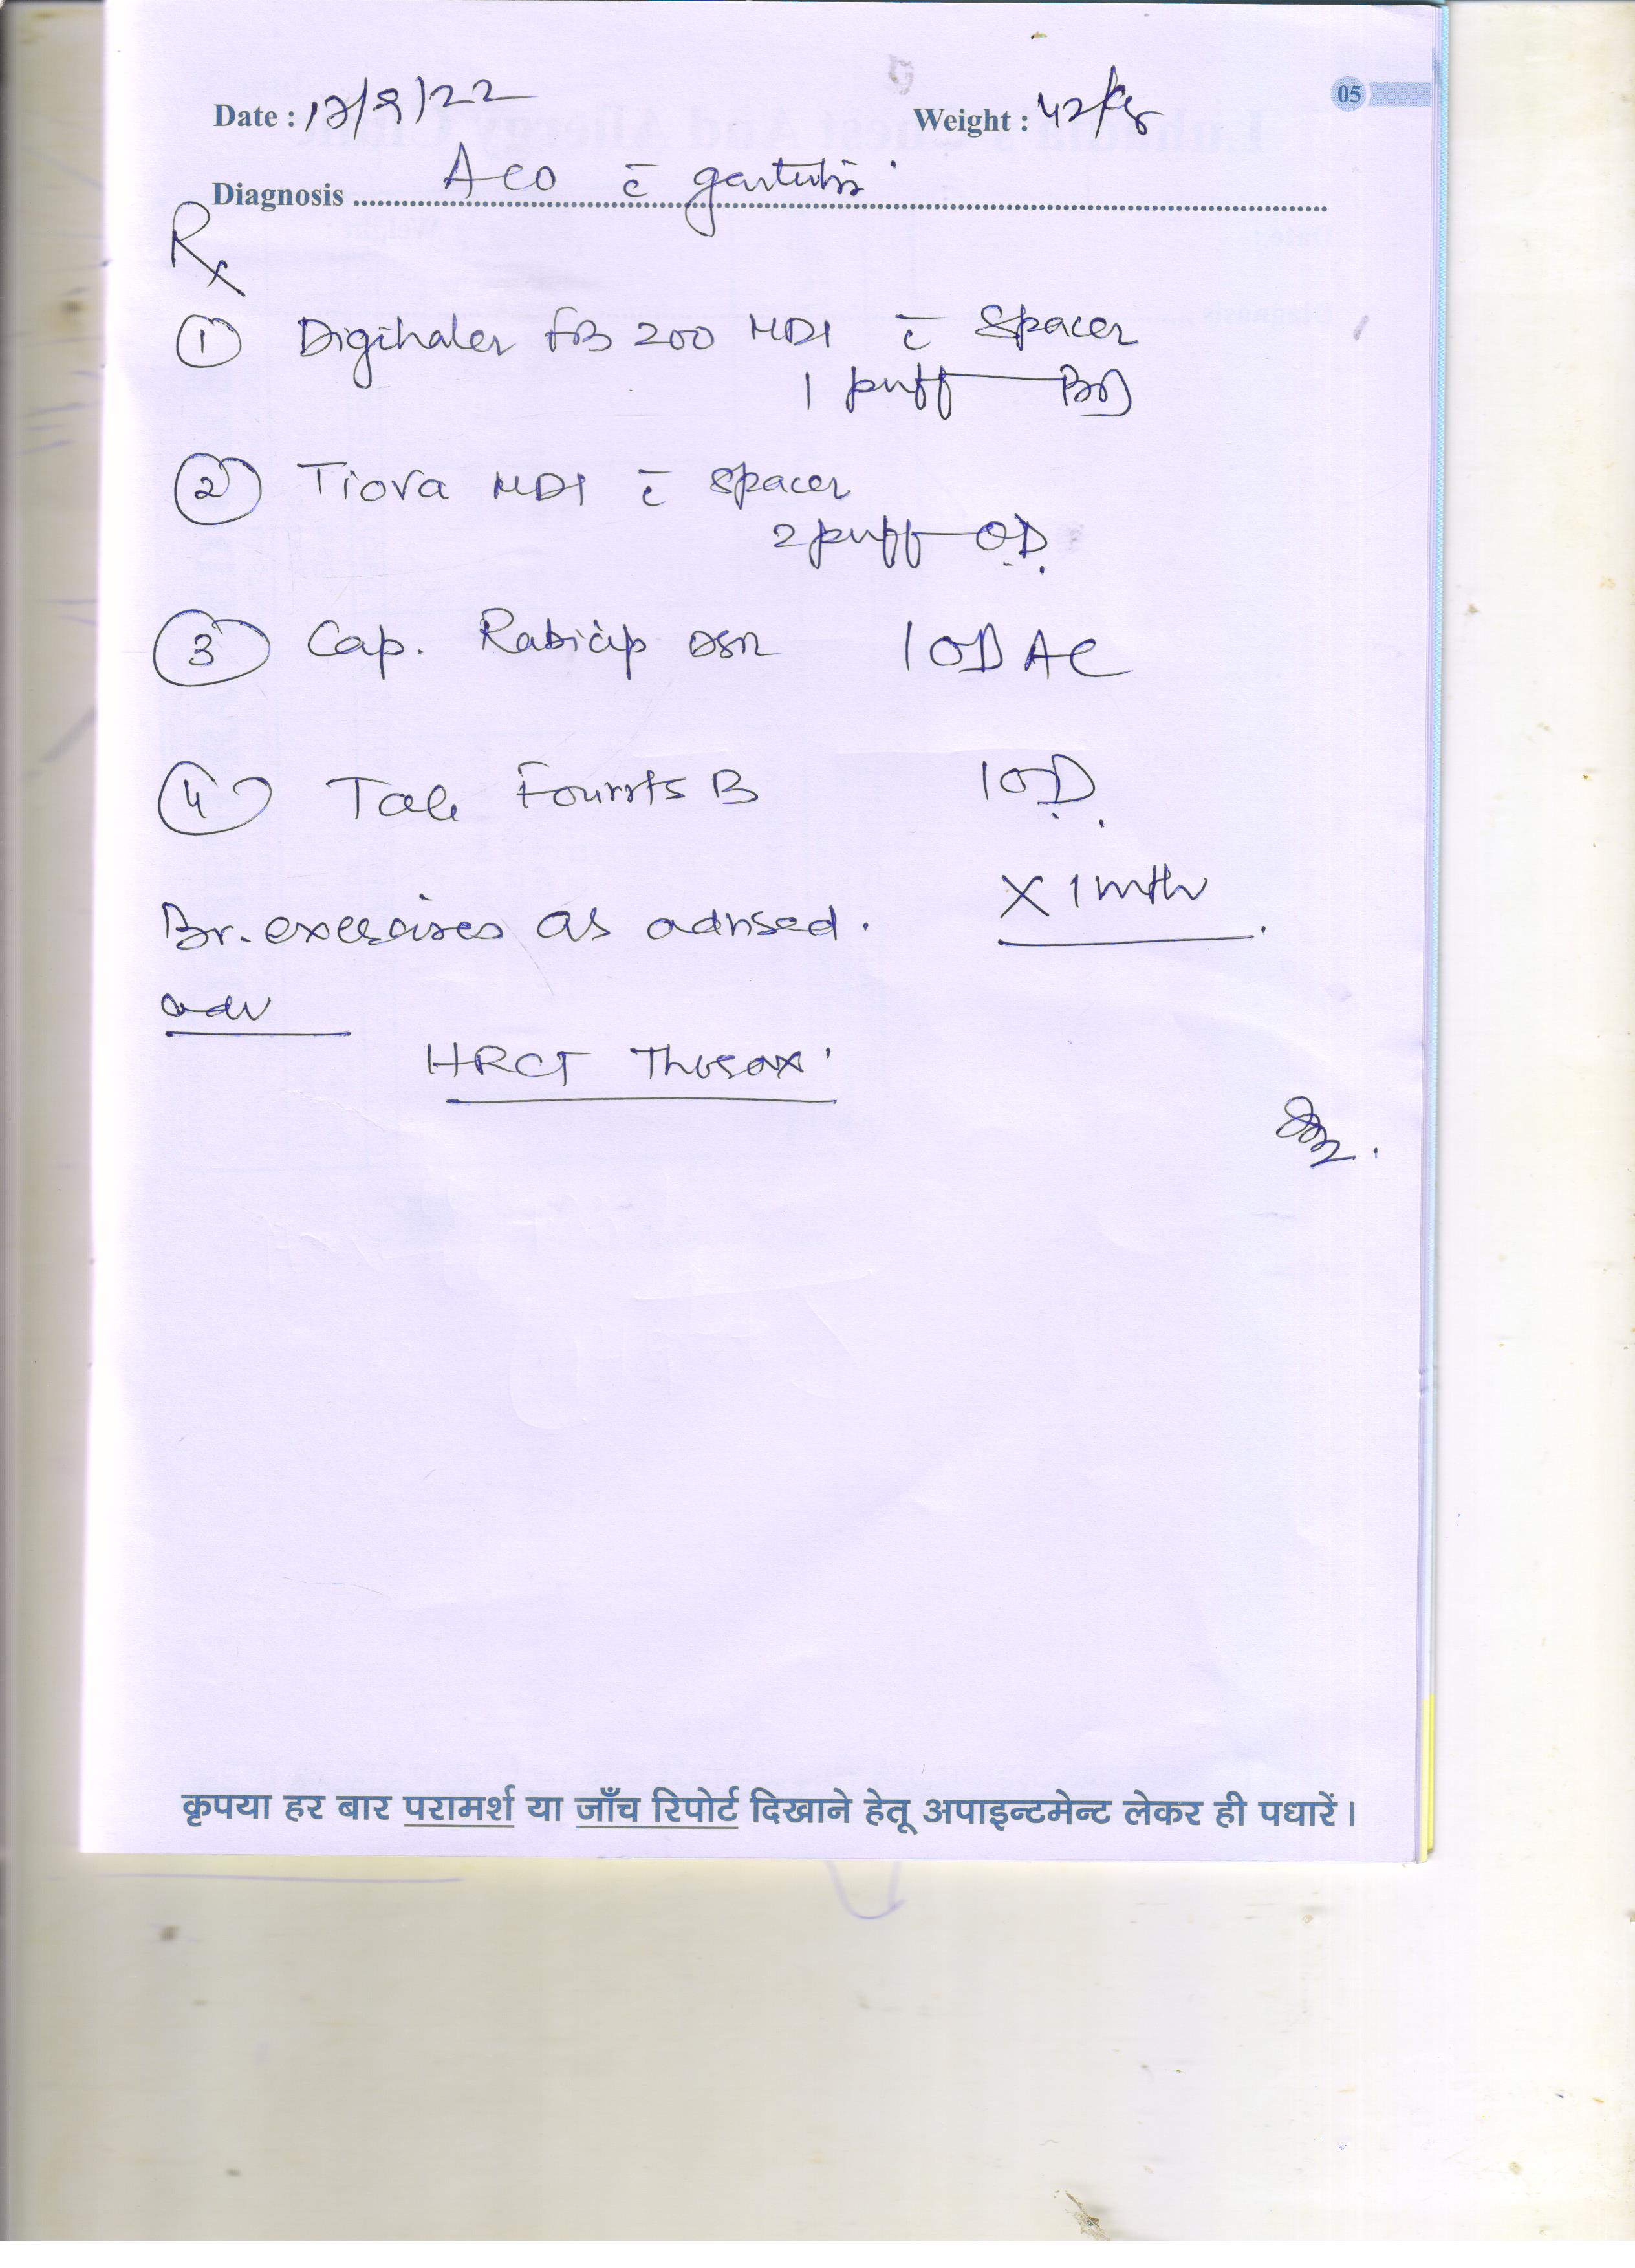 05
Date : 17/9/22 Weight : 42 kg
Diagnosis ACO c̄ gastritis
Rx
① Digihaler FB 200 MDI c̄ Spacer
1 puff — BD
② Tiova MDI c̄ spacer
2 puff — OD.
③ Cap. Rabicip DSR 1 OD AC
④ Tab Fourrts B 1 OD.
X 1 mth
Br. exercises as advised.
adv
HRCT Thorax
कृपया हर बार परामर्श या जाँच रिपोर्ट दिखाने हेतू अपाइन्टमेन्ट लेकर ही पधारें।